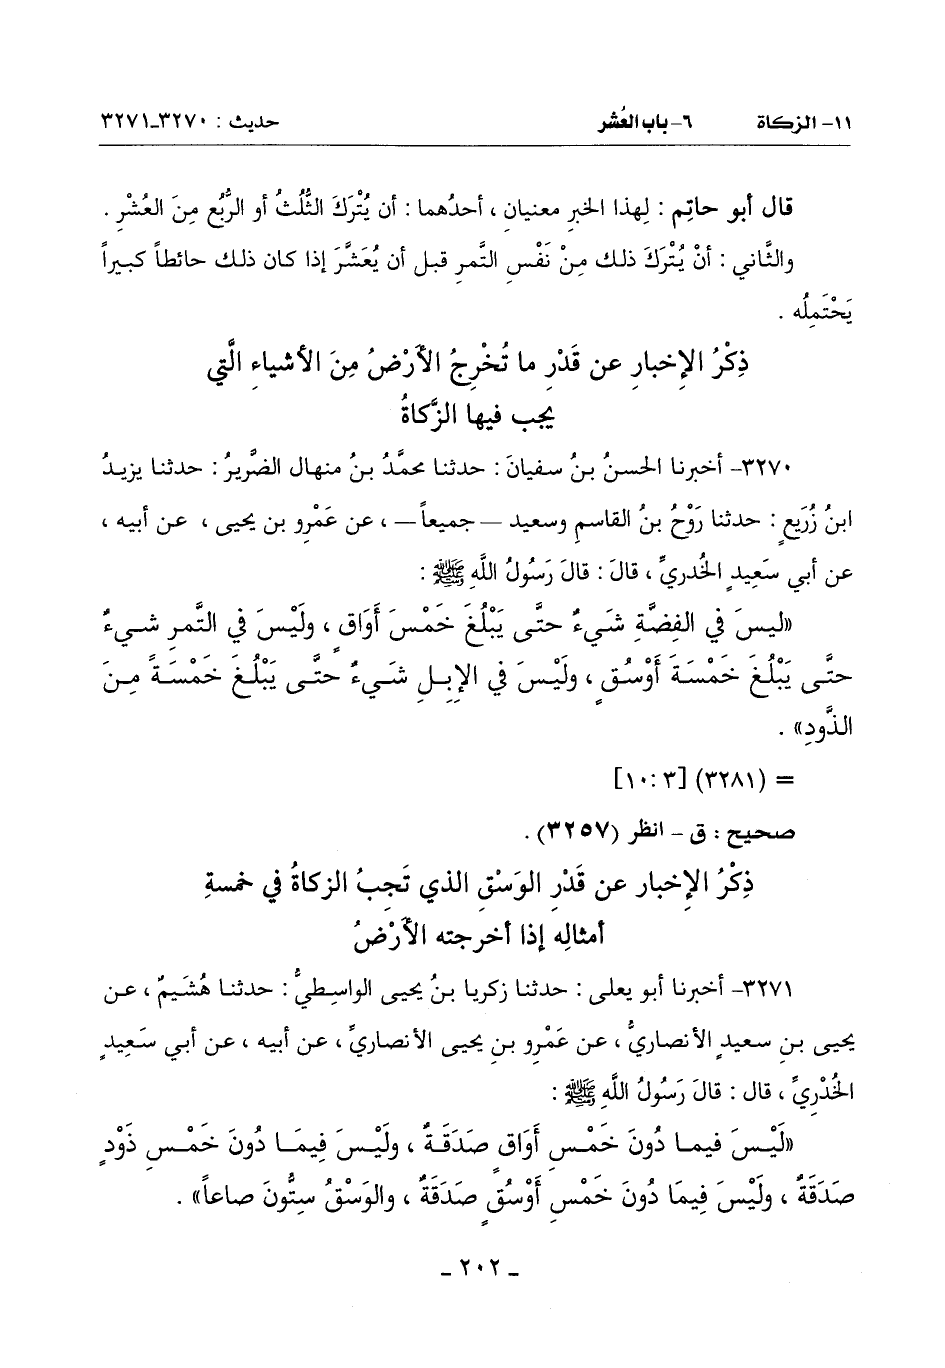 ١١- الزكاة ٦- باب العُشر حديث : ٣٢٧٠-٣٢٧١
قال أبو حاتِم : لِهذا الخبرِ معنيانِ ، أحدُهما : أن يُتْرَكَ الثُّلُثُ أو الرُّبُع مِنَ العُشْرِ .
والثَّاني : أنْ يُتْرَكَ ذلك مِنْ نَفْسِ التمرِ قبل أن يُعَشَّرَ إذا كان ذلك حائطاً كبيراً
يَحْتَمِلُه .
ذِكْرُ الإخبارِ عن قَدْرِ ما تُخْرِجُ الأَرْضُ مِنَ الأشياءِ الَّتي
يجب فيها الزَّكاةُ
٣٢٧٠- أخبرنا الحسنُ بنُ سفيانَ : حدثنا محمَّدُ بنُ منهال الضَّريرُ : حدثنا يزيدُ
ابنُ زُرَيعٍ : حدثنا رَوْحُ بنُ القاسمِ وسعيد – جميعاً – ، عن عَمْرِو بن يحيى ، عن أبيه ،
عن أبي سَعِيدٍ الخُدريِّ ، قالَ : قالَ رَسُولُ اللَّهِ ﷺ :
«ليسَ في الفِضَّةِ شَيءٌ حتَّى يَبْلُغَ خَمْسَ أَوَاقٍ ، ولَيْسَ في التَّمرِ شيءٌ
حتَّى يَبْلُغَ خَمْسَةَ أَوْسُقٍ ، ولَيْسَ في الإِبِلِ شَيءٌ حتَّى يَبْلُغَ خَمْسَةً مِنَ
الذَّودِ» .
= (٣٢٨١) [٣ : ١٠]
صحيح : ق - انظر (٣٢٥٧) .
ذِكْرُ الإخبار عن قَدْرِ الوَسْقِ الذي تَجِبُ الزكاةُ في خمسةِ
أمثالِه إذا أخرجته الأَرْضُ
٣٢٧١- أخبرنا أبو يعلى : حدثنا زكريا بنُ يحيى الواسِطيُّ : حدثنا هُشَيمٌ ، عن
يحيى بنِ سعيدٍ الأنصاريُّ ، عن عَمْرِو بنِ يحيى الأنصاريِّ ، عن أبيه ، عن أبي سَعِيدٍ
الخُدْرِيِّ ، قال : قالَ رَسُولُ اللَّهِ ﷺ :
«لَيْسَ فيما دُونَ خَمْسِ أَوَاقٍ صَدَقَةٌ ، ولَيْسَ فِيمَا دُونَ خَمْسِ ذَوْدٍ
صَدَقَةٌ ، ولَيْسَ فِيمَا دُونَ خَمْسِ أَوْسُقٍ صَدَقَةٌ ، والوَسْقُ سِتُّونَ صاعاً» .
- ٢٠٢ -